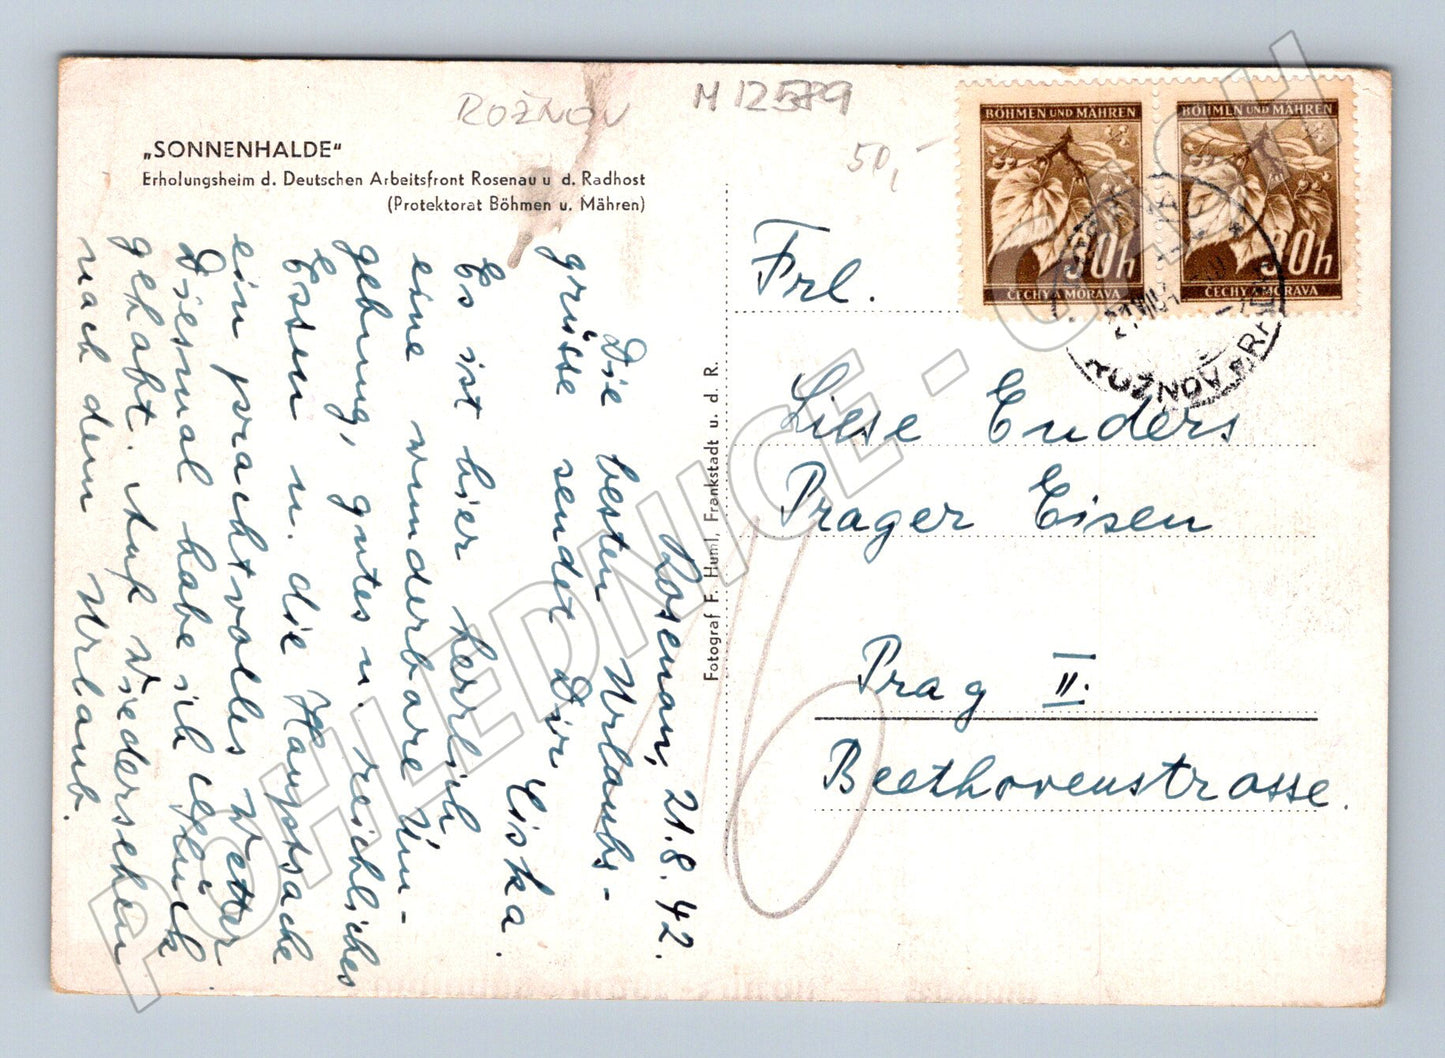 ROŽNOV
M 12579
50,-
„SONNENHALDE“
Erholungsheim d. Deutschen Arbeitsfront Rosenau u. d. Radhost
(Protektorat Böhmen u. Mähren)
BÖHMEN UND MÄHREN
30h
ČECHY A MORAVA
BÖHMEN UND MÄHREN
30h
ČECHY A MORAVA
ROŽNOV
Rosenau, 21.8.42.
Die besten Urlaubs-
grüsse sendet Dir
Ciska.
Es ist hier herrlich
eine wunderbare Um-
gebung, gutes u. reichliches
Essen u. die Hauptsache
ein prachtvolles Wetter
Diesmal habe ich Glück
gehabt. Auf Wiedersehen
nach dem Urlaub.
Fotograf F. Huml, Frankstadt u. d. R.
Frl.
Liese Enders
Prager Eisen
Prag II.
Beethovenstrasse.
16
POHLEDNICE - CASH